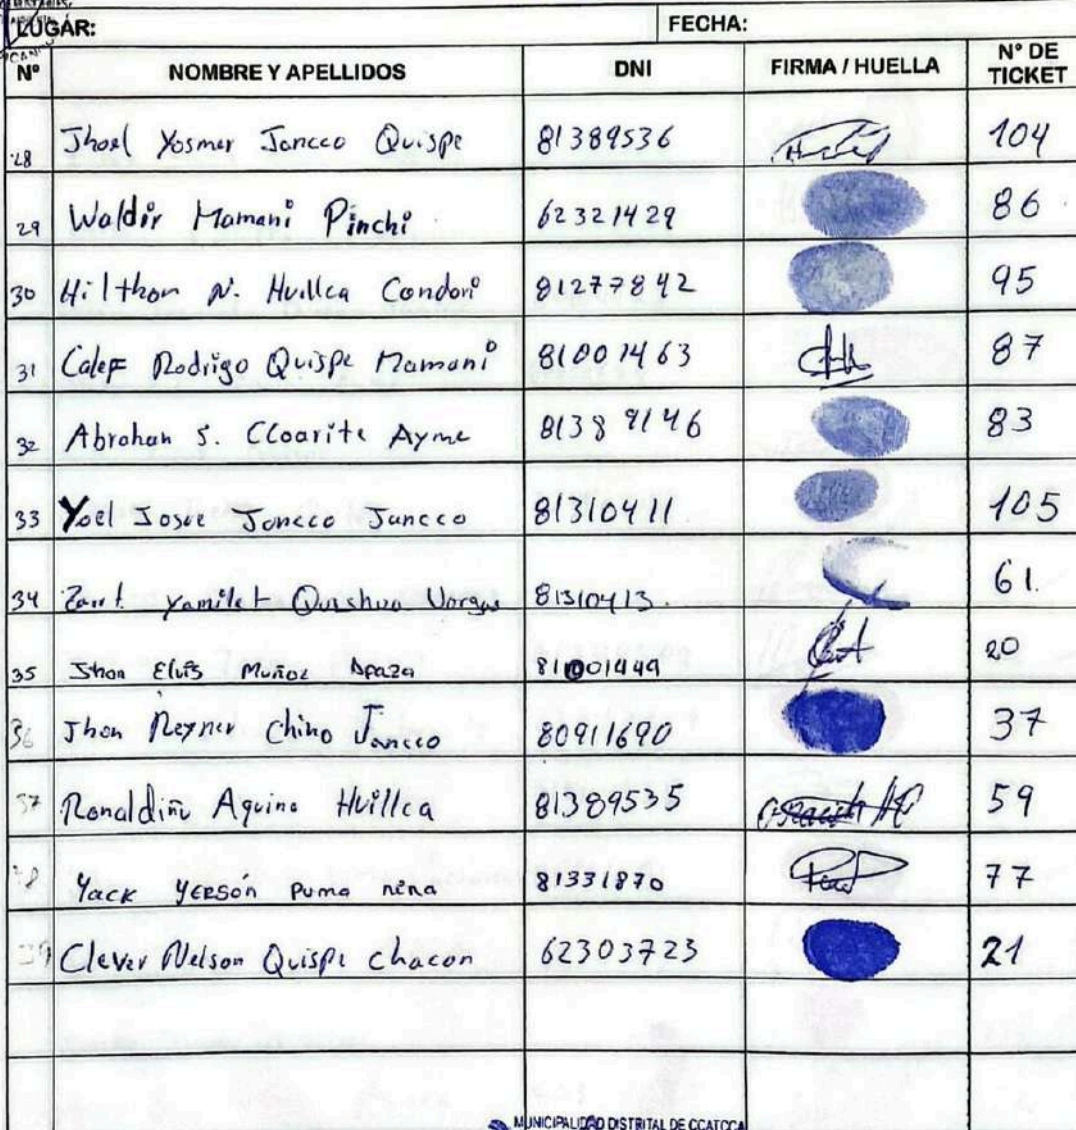 LUGAR: FECHA:
Nº NOMBRE Y APELLIDOS DNI FIRMA / HUELLA Nº DE TICKET
28 Jhoel Yosmer Jancco Quispe 81389536 104
29 Waldir Mamani Pinchi 62321429 86
30 Hilthon N. Huillca Condori 81277842 95
31 Calef Rodrigo Quispe Mamani 81001463 87
32 Abrahan S. Ccoarite Ayme 81389146 83
33 Yoel Josue Jancco Jancco 81310411 105
34 Yamilet Quishua Vargas 81310413. 61.
35 Jhon Elvis Muñoz Apaza 81001449 20
36 Jhon Reyner Chino Jancco 80911690 37
37 Ronaldiño Aquino Huillca 81389535 59
38 Yack Yersón Puma nina 81331870 77
39 Clever Nelson Quispe chacon 62303723 21
MUNICIPALIDAD DISTRITAL DE CCATCCA